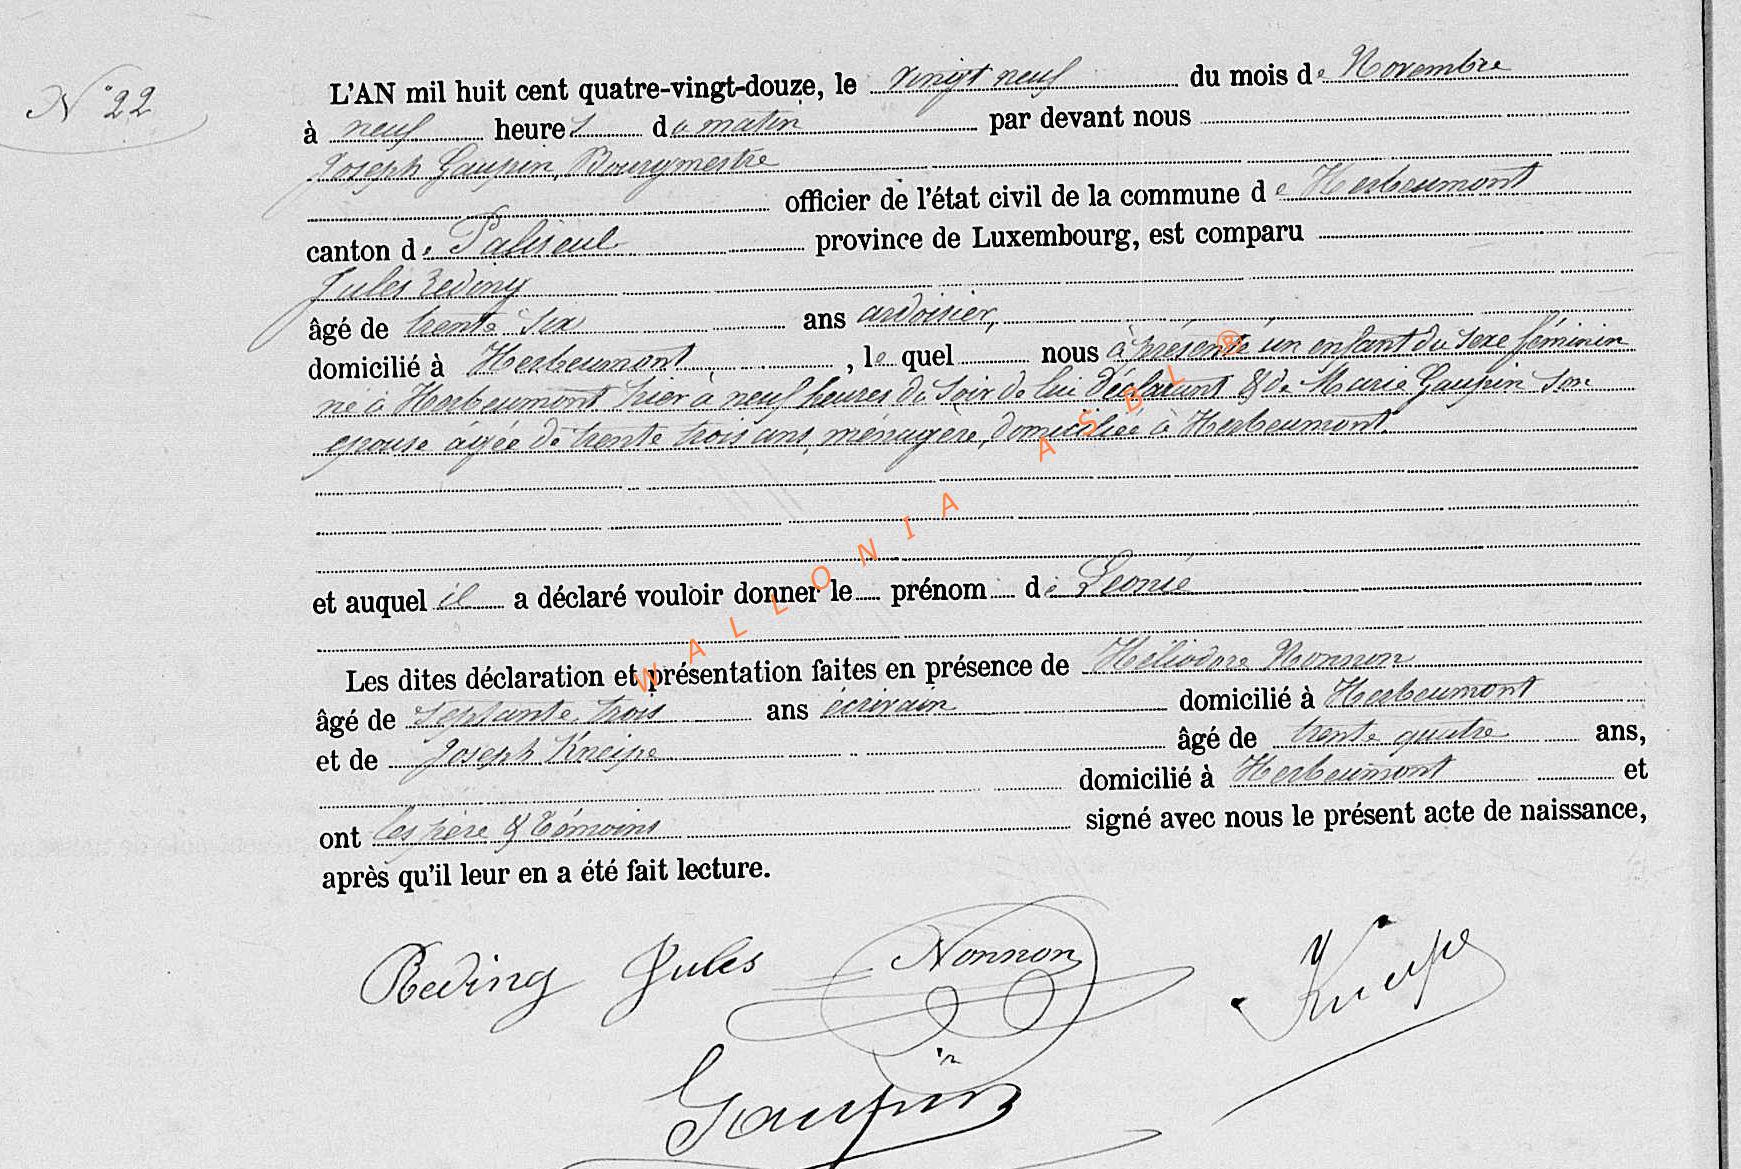 N° 22
L'AN mil huit cent quatre-vingt-douze, le vingt neuf du mois de Novembre
à neuf heures du matin par devant nous
Joseph Gaupin, Bourgmestre
officier de l'état civil de la commune de Herbeumont
canton de Paliseul province de Luxembourg, est comparu
Jules Reding
âgé de trente six ans ardoisier,
domicilié à Herbeumont, , le quel nous à présenté un enfant du sexe féminin
né à Herbeumont hier à neuf heures du soir de lui déclarant & de Marie Gaupin son
epouse âgée de trente trois ans, ménagère, domiciliée à Herbeumont
et auquel il a déclaré vouloir donner le prénom de Leonie
Les dites déclaration et présentation faites en présence de Héliodore Nonnon
âgé de septante trois ans écrivain domicilié à Herbeumont
et de Joseph Kneipe âgé de trente quatre ans,
domicilié à Herbeumont et
ont les père & témoins signé avec nous le présent acte de naissance,
après qu'il leur en a été fait lecture.
Reding Jules Nonnon Kneipe
Gaupin
WALLONIA ASBL ®